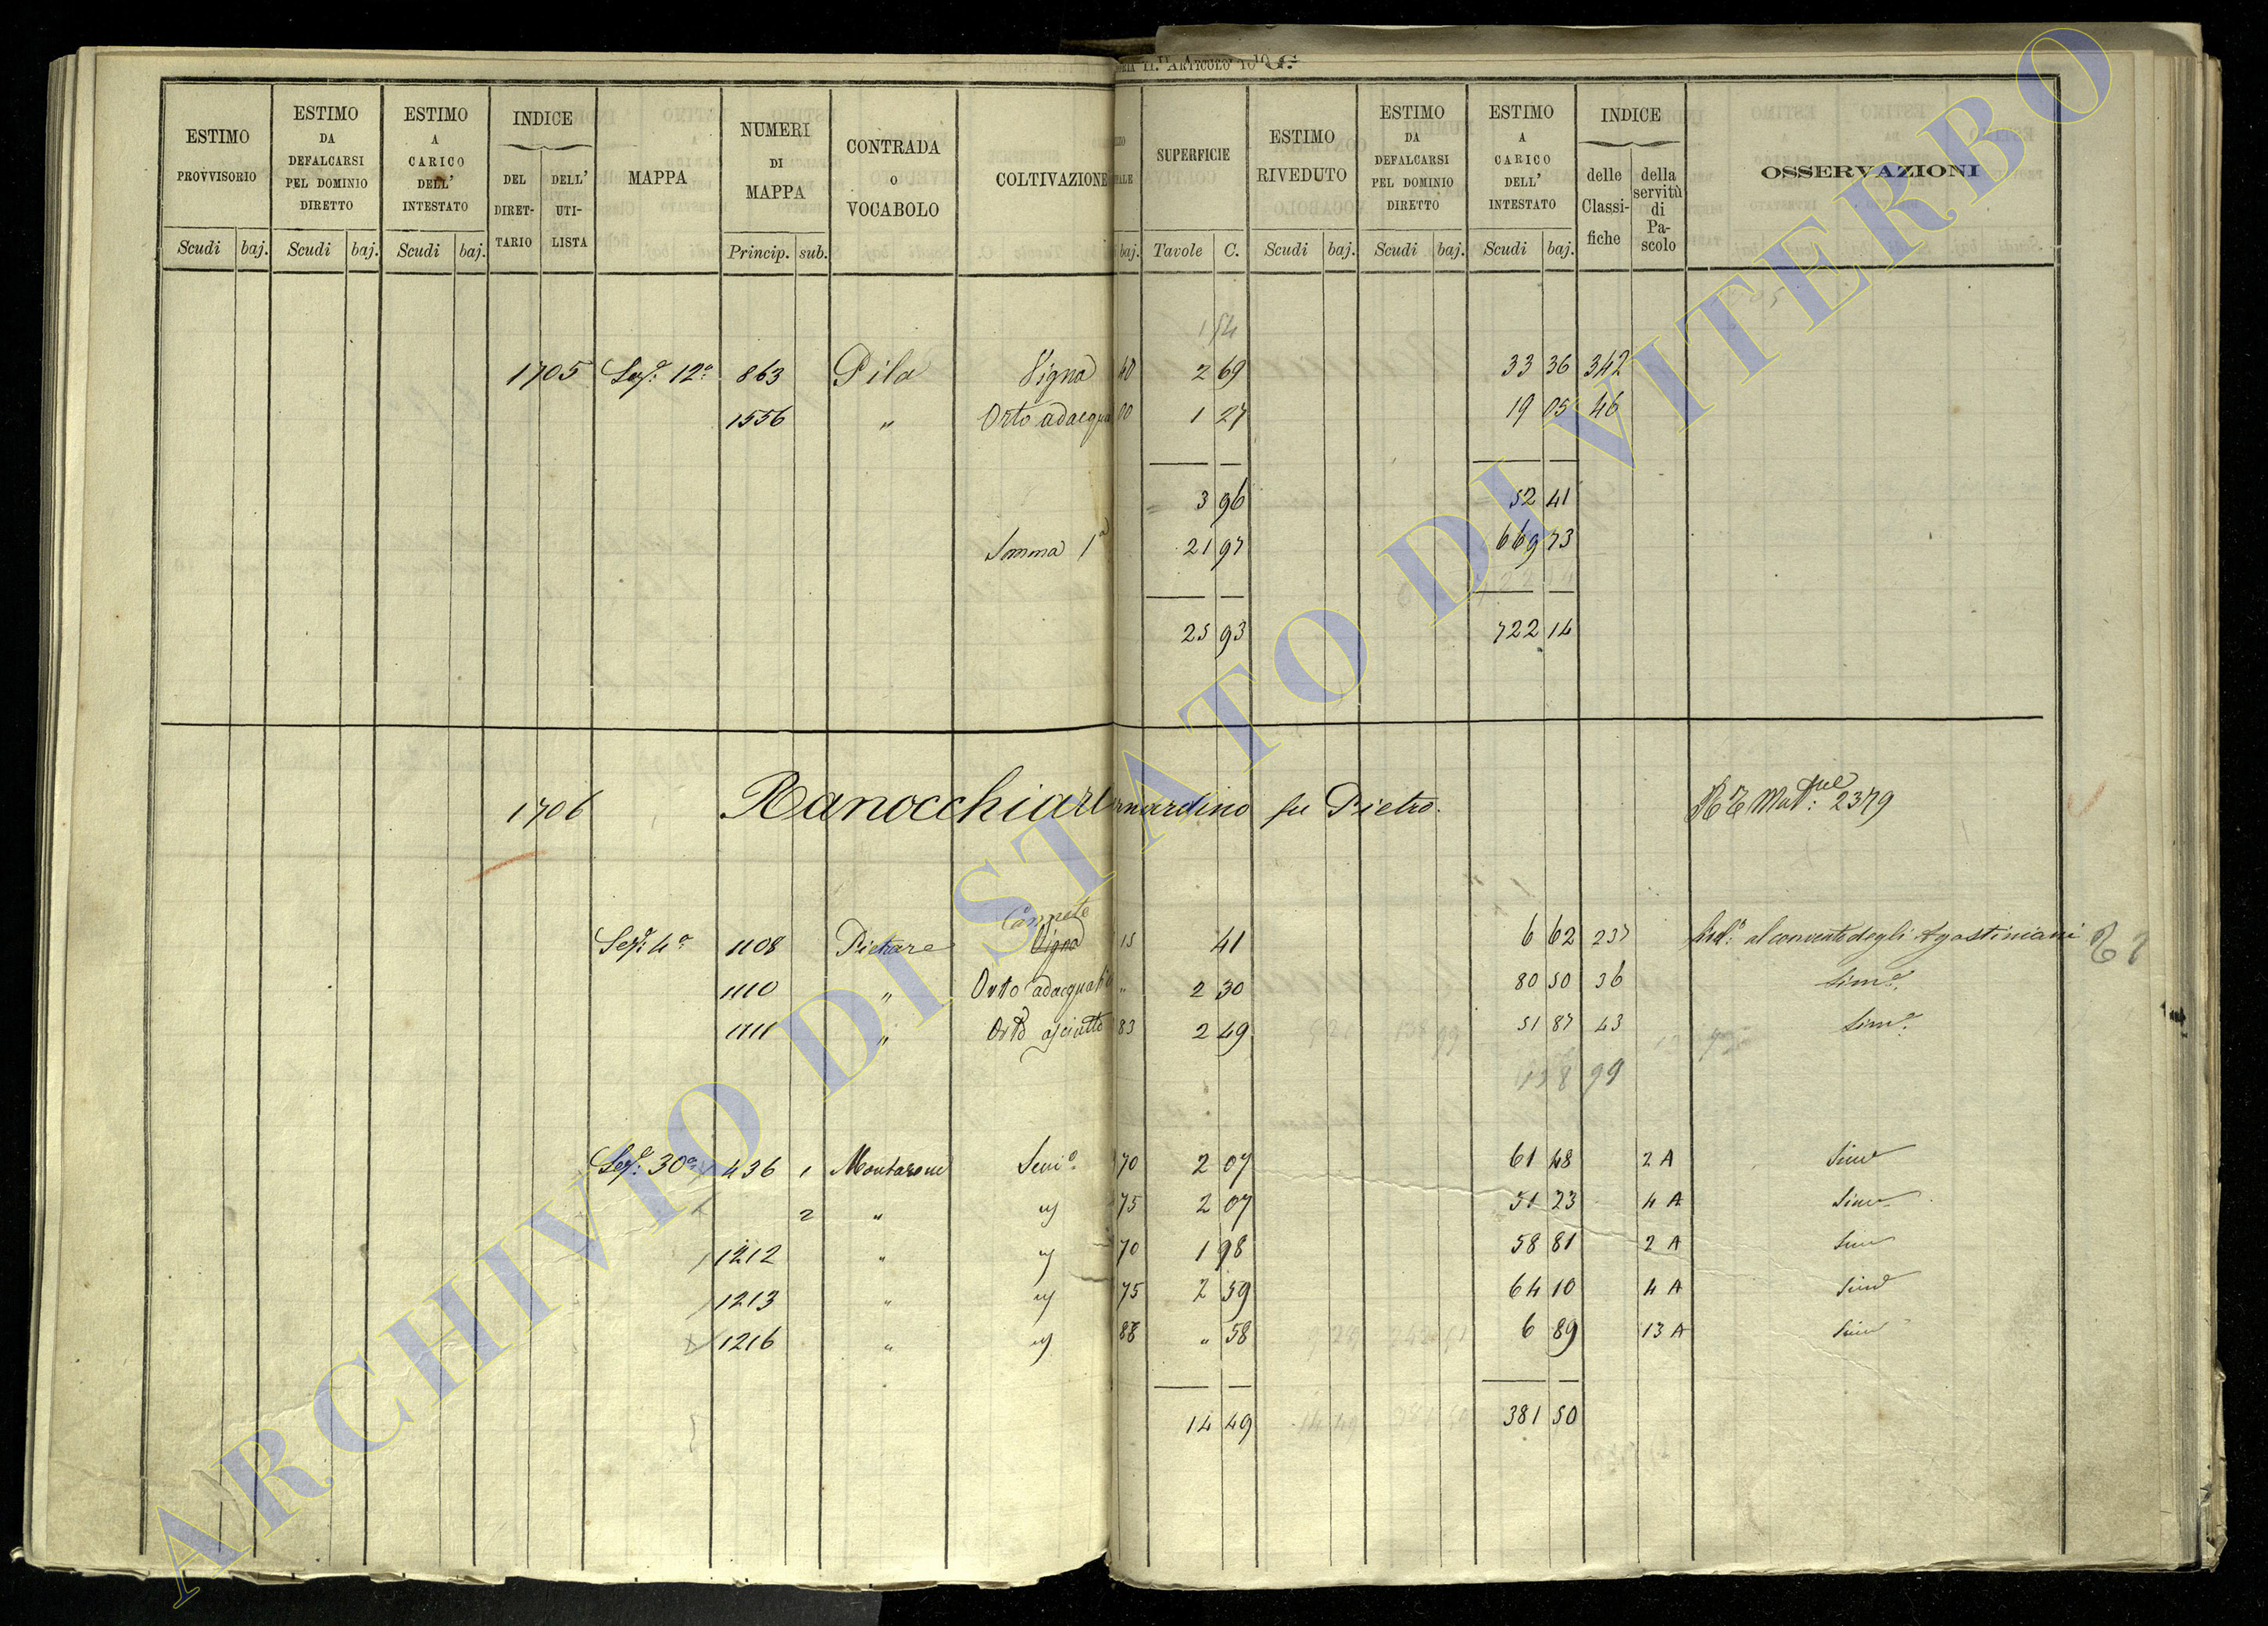 ARTICOLO
ESTIMO PROVVISORIO
Scudi baj.
ESTIMO DA DEFALCARSI PEL DOMINIO DIRETTO
Scudi baj.
ESTIMO A CARICO DELL' INTESTATO
Scudi baj.
INDICE
DEL DIRET-
TARIO
DELL' UTI-
LISTA
MAPPA
NUMERI DI MAPPA
Princip. sub.
CONTRADA O VOCABOLO
COLTIVAZIONE
baj.
SUPERFICIE
Tavole C.
ESTIMO RIVEDUTO
Scudi baj.
ESTIMO DA DEFALCARSI PEL DOMINIO DIRETTO
Scudi baj.
ESTIMO A CARICO DELL' INTESTATO
Scudi baj.
INDICE
delle Classi-
fiche
della servitù di Pa-
scolo
OSSERVAZIONI
154
1705 Sez.e 12a 863 Pila Vigna 40 2 69 33 36 342
1556 " Orto adacqua 00 1 27 19 05 46
3 96 52 41
Somma 1a 21 97 669 73
25 93 722 14
1706 Ranocchiari Bernardino fu Pietro. 2379
Sez.e 4a 1108 Pietrare Cannete Vigna 15 41 6 62 237 al convento degli Agostiniani
1110 " Orto adacquat " 2 30 80 50 36 Sim.e
1111 " Orto asciutto 83 2 49 51 87 43 Sim.e
138 99
Sez.e 30a 436 1 Montarone Sem.o 70 2 07 61 48 2 A Sim.e
2 " " 75 2 07 51 23 4 A Sim.e
1212 " " 70 1 98 58 81 2 A Sim.e
1213 " " 75 2 59 64 10 4 A Sim.e
1216 " " 88 " 58 6 89 13 A Sim.e
14 49 381 50
ARCHIVIO DI STATO DI VITERBO